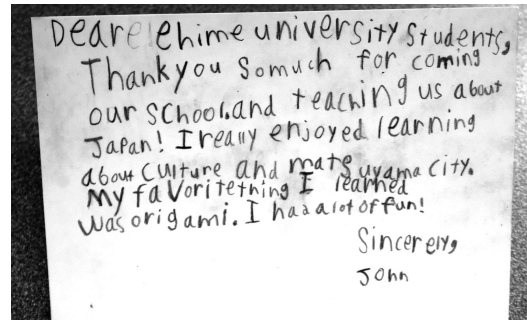 Dear ehime university students,
Thank you so much for coming
our school.and teaching us about
Japan! I really enjoyed learning
about culture and matsuyama city.
My favorite thing I learned
was origami. I had a lot of fun!
Sincerely,
John